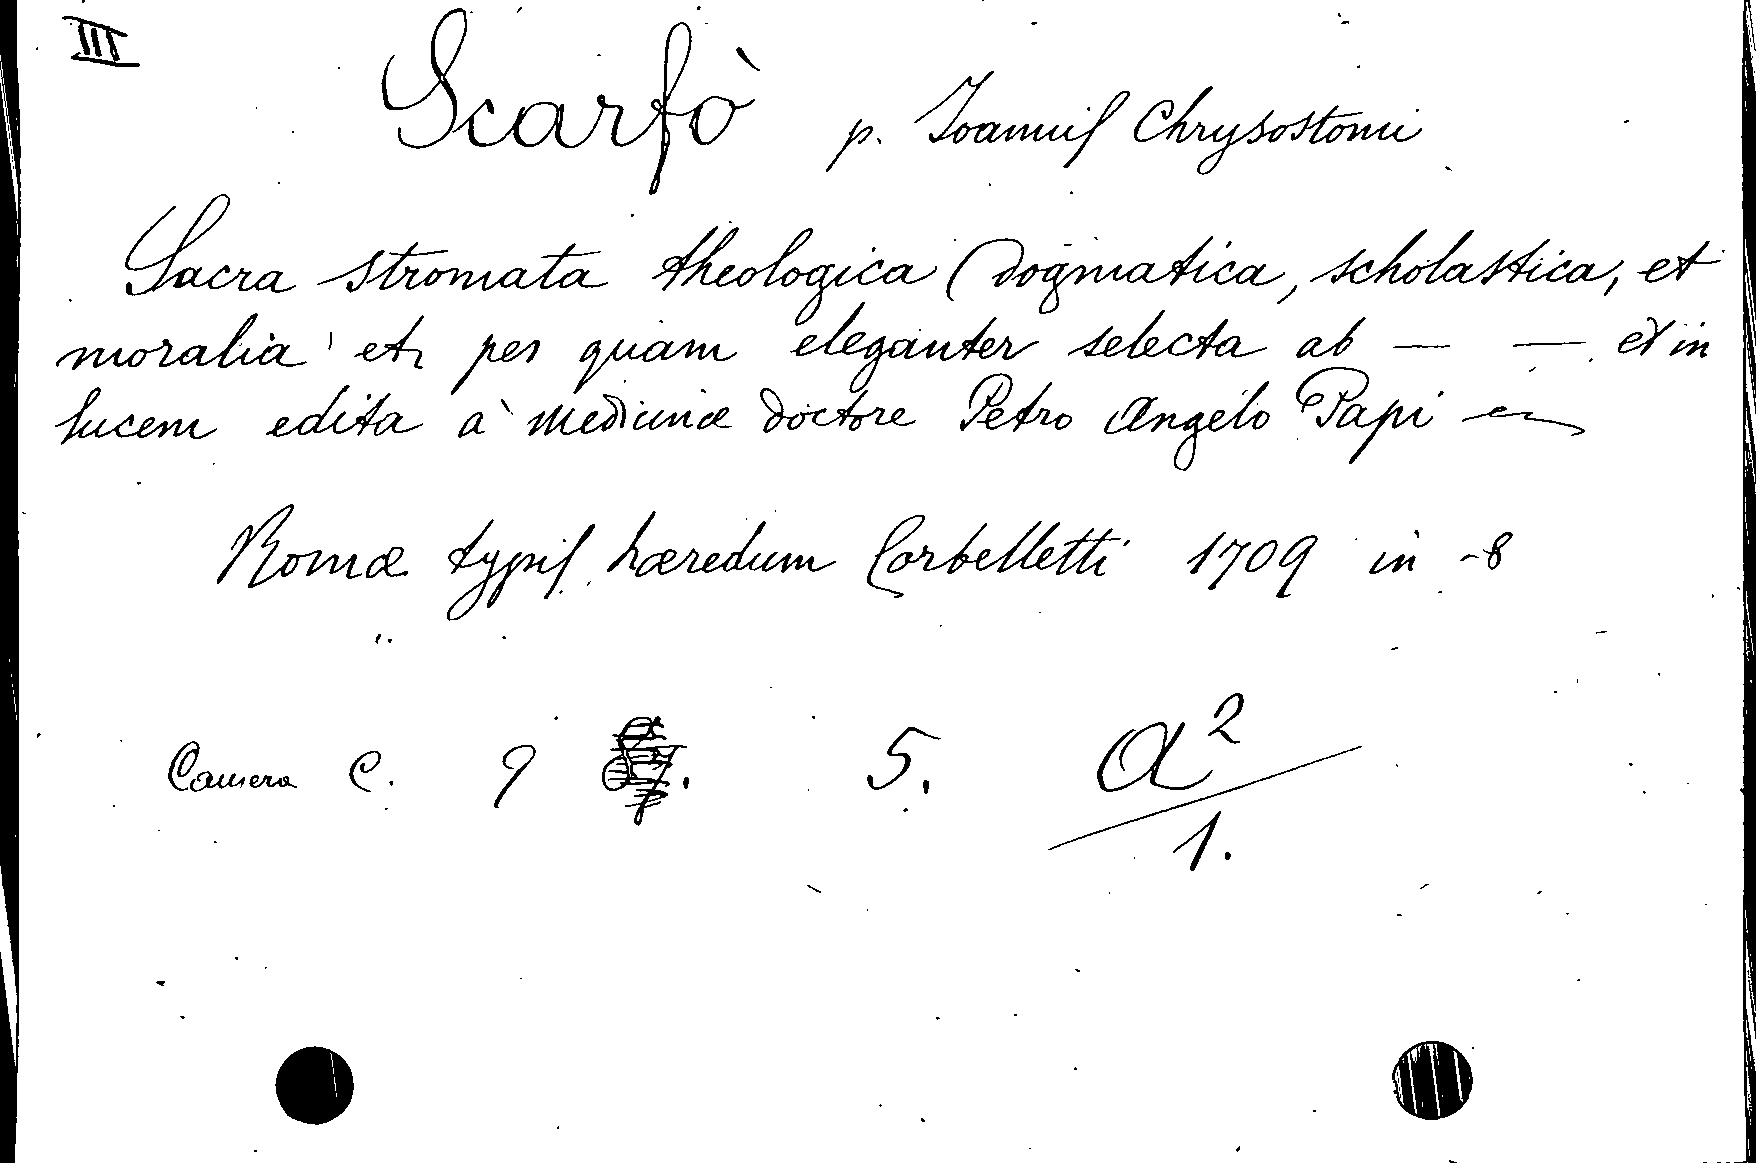 III
Scarfò p. Joannis Chrysostomi
Sacra stromata theologica (dogmatica, scholastica, et
moralia et per quam eleganter selecta ab — — et in
lucem edita à medicinæ doctore Petro Angelo Papi
Romæ typis hæredum Corbelletti 1709 in -8
Camera C. 9 5. a²
1.